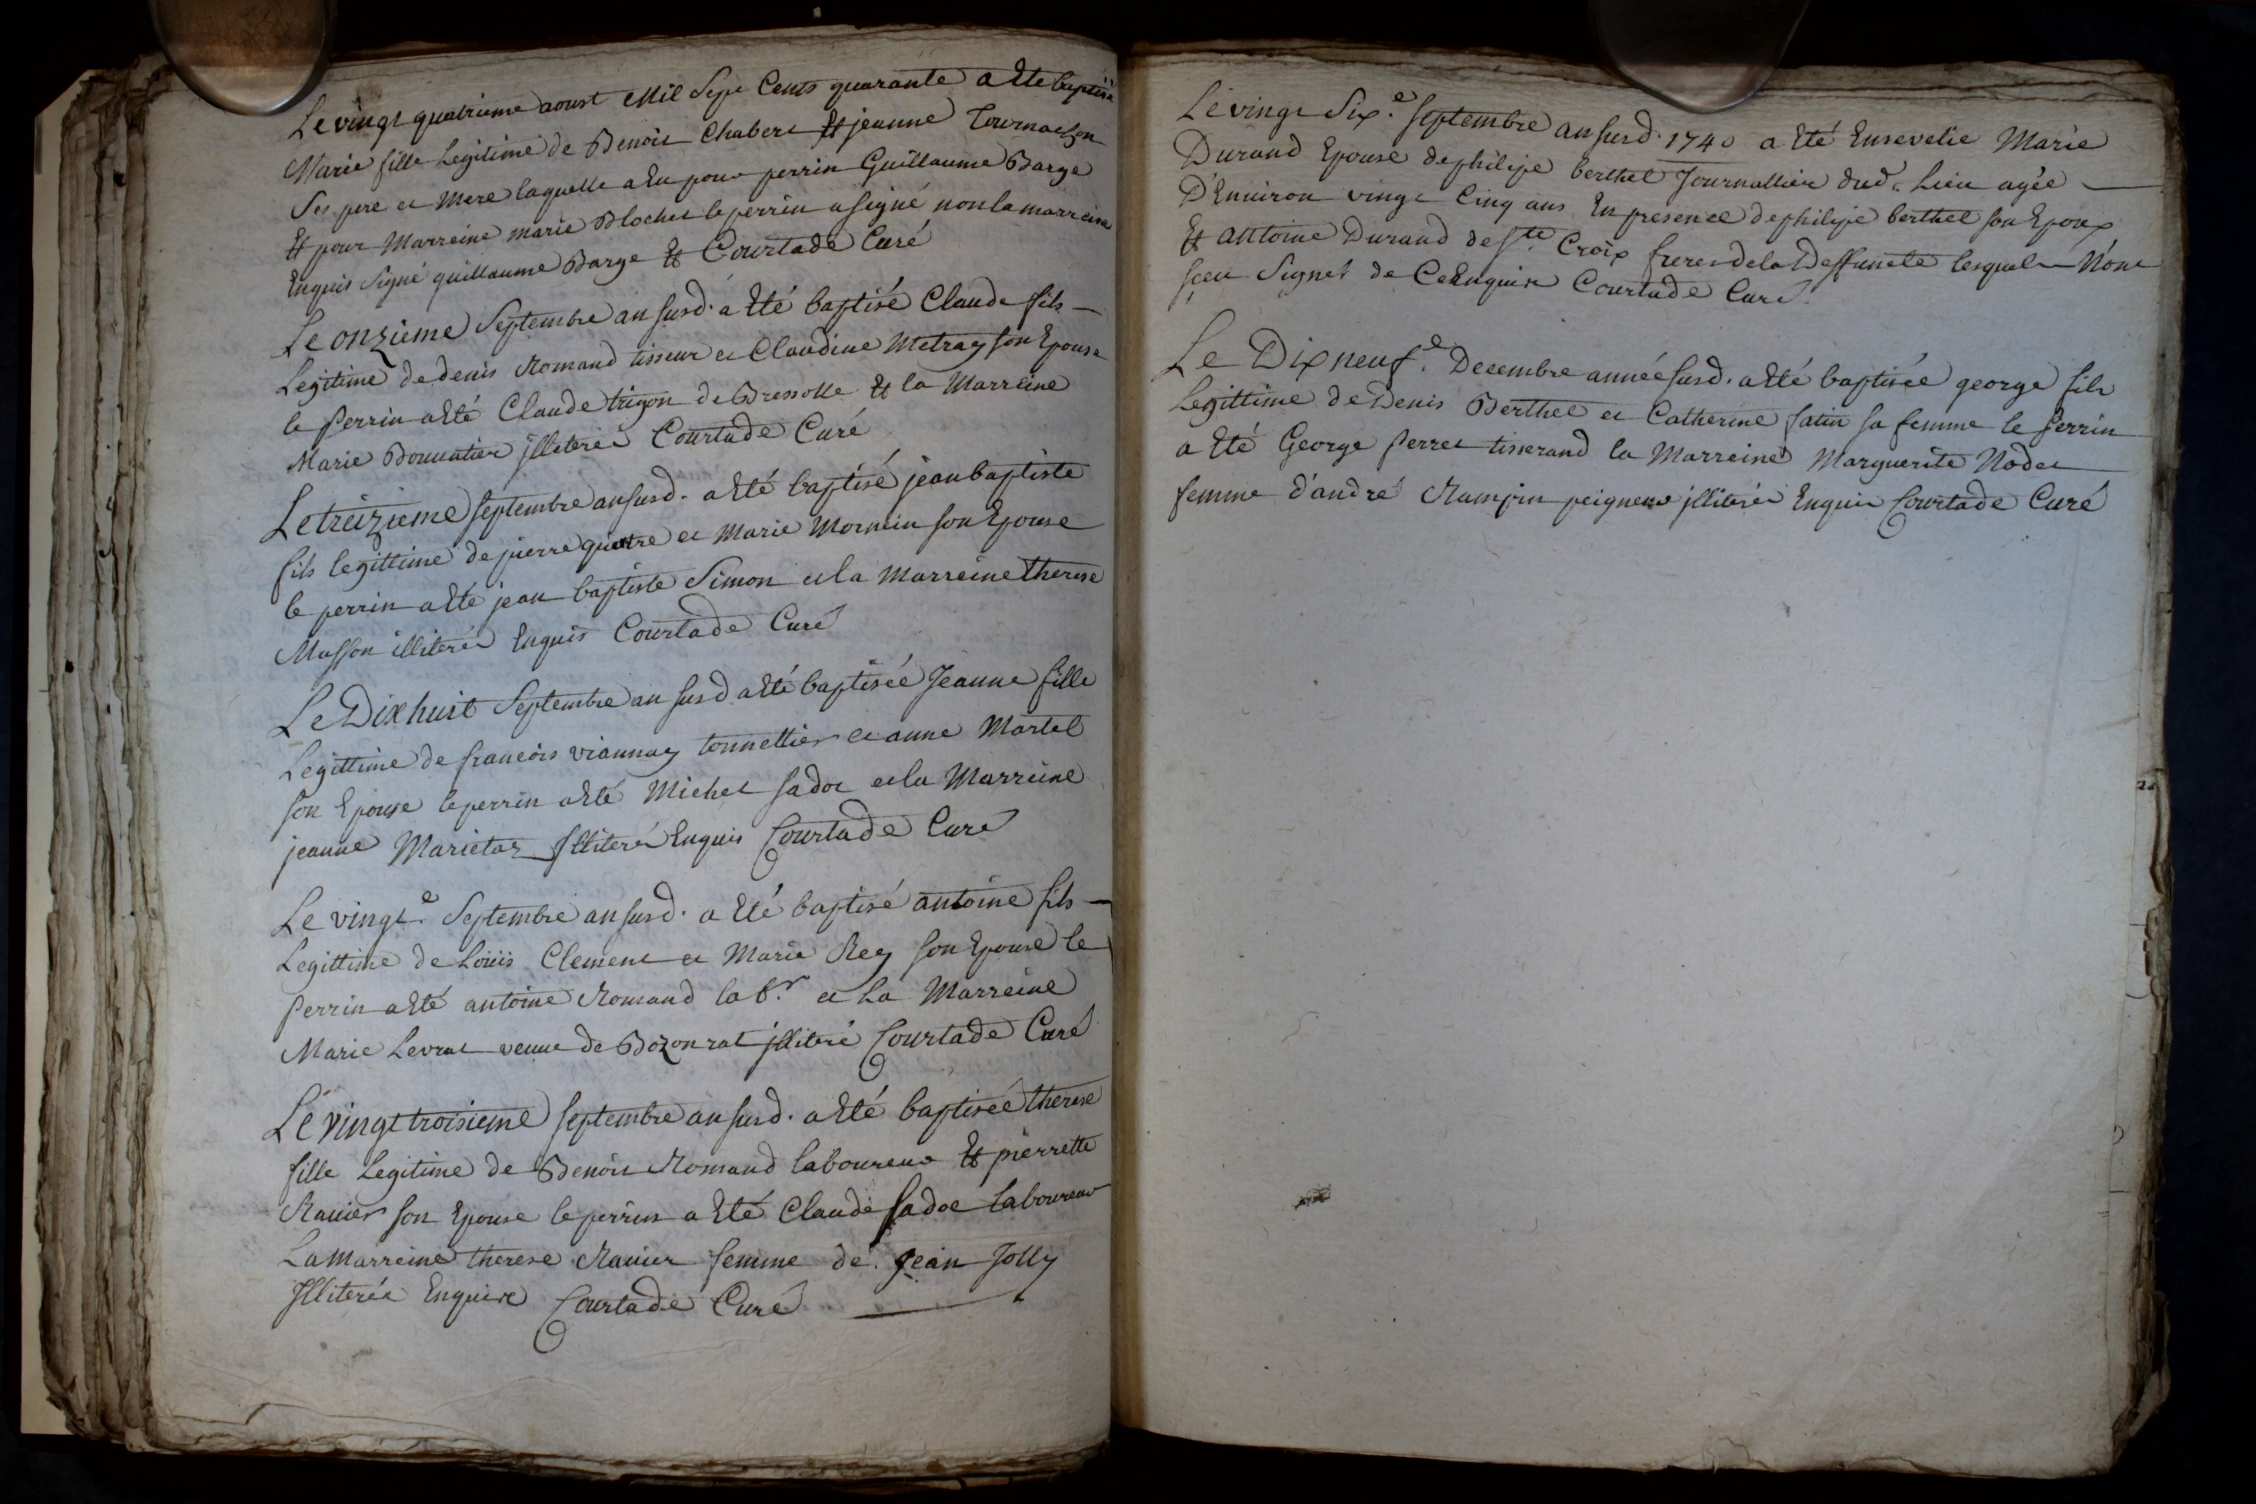 Le vingt quatrieme aoust Mil Sept Cents quarante a Eté baptisé
Marie fille Legitime de Benoit Chabert Et jeanne Tournachon
Ses pere et Mere laquelle a Eu pour perrin Guillaume Barge
Et pour Marreine marie Blochet le perrin a signé non la marreine
Enquis Signé guillaume Barge Et Courtade Curé
Le onzieme Septembre an susd. a Eté baptisé Claude fils
Legitime de denis Romand tisseur et Claudine Metray son Epouse
le Perrin a Eté Claude trigon de Bressolle Et la Marreine
Marie Donnatier jlliterés Courtade Curé
Le treizieme septembre an susd. a Eté baptisé jean baptiste
fils legittime de pierre quatre et Marie Mornieu son Epouse
le perrin a Eté jean baptiste Simon et la Marreine therese
Masson illiterés Enquis Courtade Curé
Le Dixhuit Septembre an susd a Eté baptisée Jeanne fille
Legittime de francois viannay tonnellier et anne Martel
son Epouse le perrin a Eté Michel sadoc et la Marreine
jeanne Marietaz Jlliterés Enquis Courtade Curé
Le vingt.e Septembre an susd. a Eté baptisé antoine fils
Legittime de Loüis Clement et Marie Rey son Epouse le
Perrin a Eté antoine Romand lab.r et La Marreine
Marie Levrat veuve de Bozonrat jlliteré Courtade Curé
Le vingt troisieme septembre an susd. a Eté baptisée therese
fille Legitime de Benoit Romand laboureur Et pierrette
Ravier son Epouse le perrin a Eté Claude sadoc Laboureur
La marreine therese Ravier femme de jean Jolly
Jlliterée Enquise Courtade Curé
Le vingt Six.e septembre an susd. 1740 a Eté Ensevelie Marie
Durand Epouse de philipe berthet Journallier dud. Lieu agée
D'Environ vingt Cinq ans En presence de philipe berthet son Epoux
Et antoine Durand de Ste Croix freres de la Deffuncte lesquels N'ont
sceu Signer de Ce Enquis Courtade Curé
Le Dix neuf.e Decembre année susd. a Eté baptisée george fils
Legittime de Denis Berthet et Catherine satin sa femme le Perrin
a Eté George Perret tisserand la Marreine Marguerite Nodet
femme d'andré Rampin peigneur jlliterés Enquis Courtade Curé